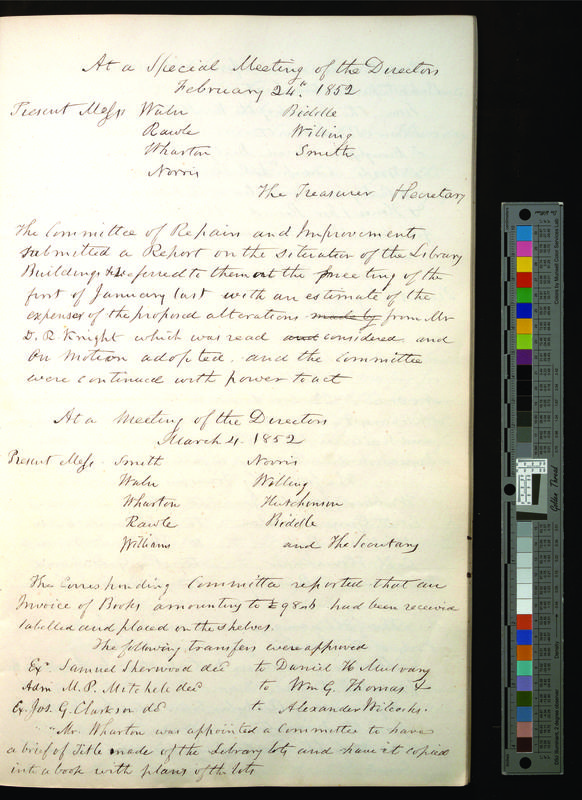 At a Special Meeting of the Directors
February 24th. 1852
Present Messrs Waln Biddle
Rawle Willing
Wharton Smith
Norris
The Treasurer & Secretary
The Committee of Repairs and Improvements
submitted a Report on the situation of the Library
Buildings referred to them at the meeting of the
first of January last with an estimate of the
expenses of the proposed alterations made by from Mr
D. R. Knight which was read and considered, and
On Motion adopted, and the Committee
were continued with power to act
At a Meeting of the Directors
March 4. 1852
Present Mess. Smith Norris
Waln Willing
Wharton Hutchinson
Rawle Biddle
Williams and The Secretary
The Corresponding Committee reported that an
Invoice of Books amounting to had been received
labelled and placed on the shelves.
The following transfers were approved
Exr. Samuel Sherwood decd to Daniel H Mulvany
Admr M. P. Mitchell decd to Wm G. Thomas
Ex. Jos. G. Clarkson dd to Alexander Wilcocks.
Mr. Wharton was appointed a Committee to have
a brief of Title made of the Library lots and have it copied
into a book with plans of the lots
Golden Thread